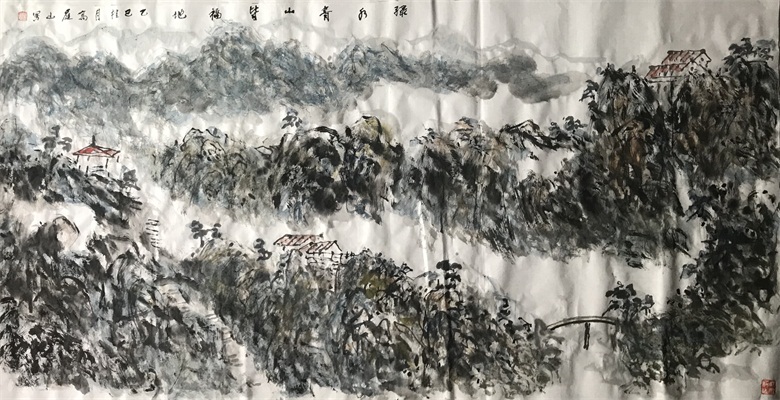 绿水青山皆福地 乙巳桂月高山写